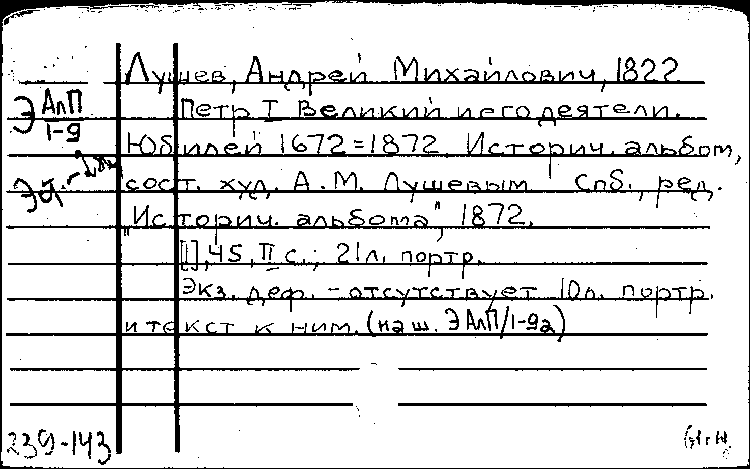 Лушев, Андрей Михайлович, 1822
Э АлП
1-9
Петр I Великий и его деятели.
Юбилей 1672=1872. Историч. альбом,
сост. худ. А.М. Лушевым Спб., ред.
"Историч. альбома", 1872.
[I], 45, II с.; 21 л. портр.
Экз. деф. - отсутствует 10 л. портр.
и текст к ним. (на ш. ЭАлП/1-9а)
239-143